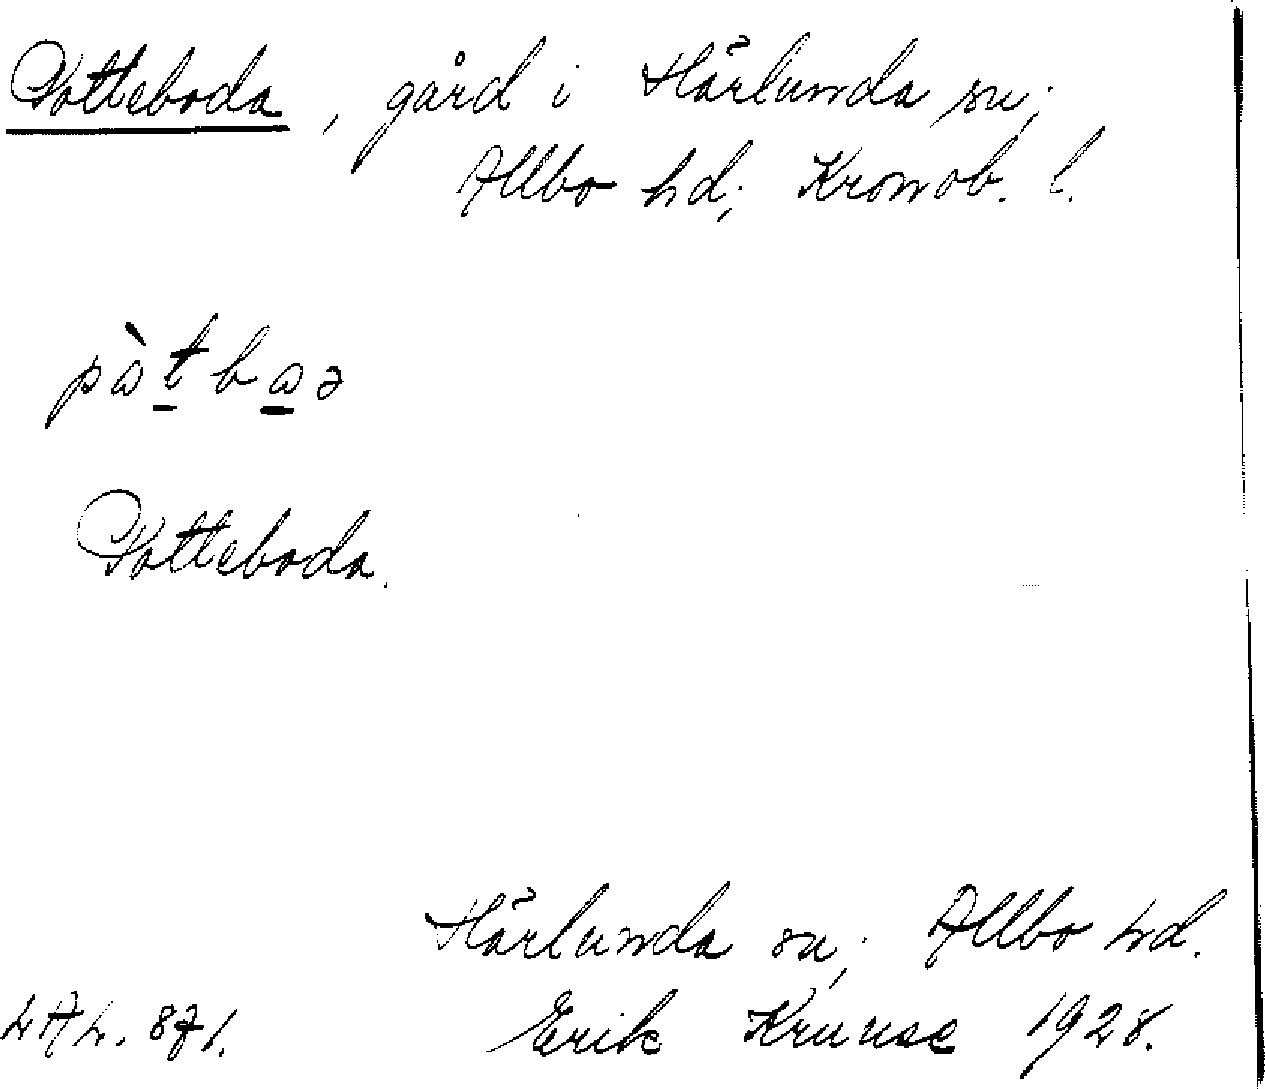 Potteboda, gård i Härlunda sn;
Allbo hd; Kronob. l.
pàtbaə
Potteboda.
Härlunda sn; Allbo hd.
LAL. 871. Erik Kruuse 1928.